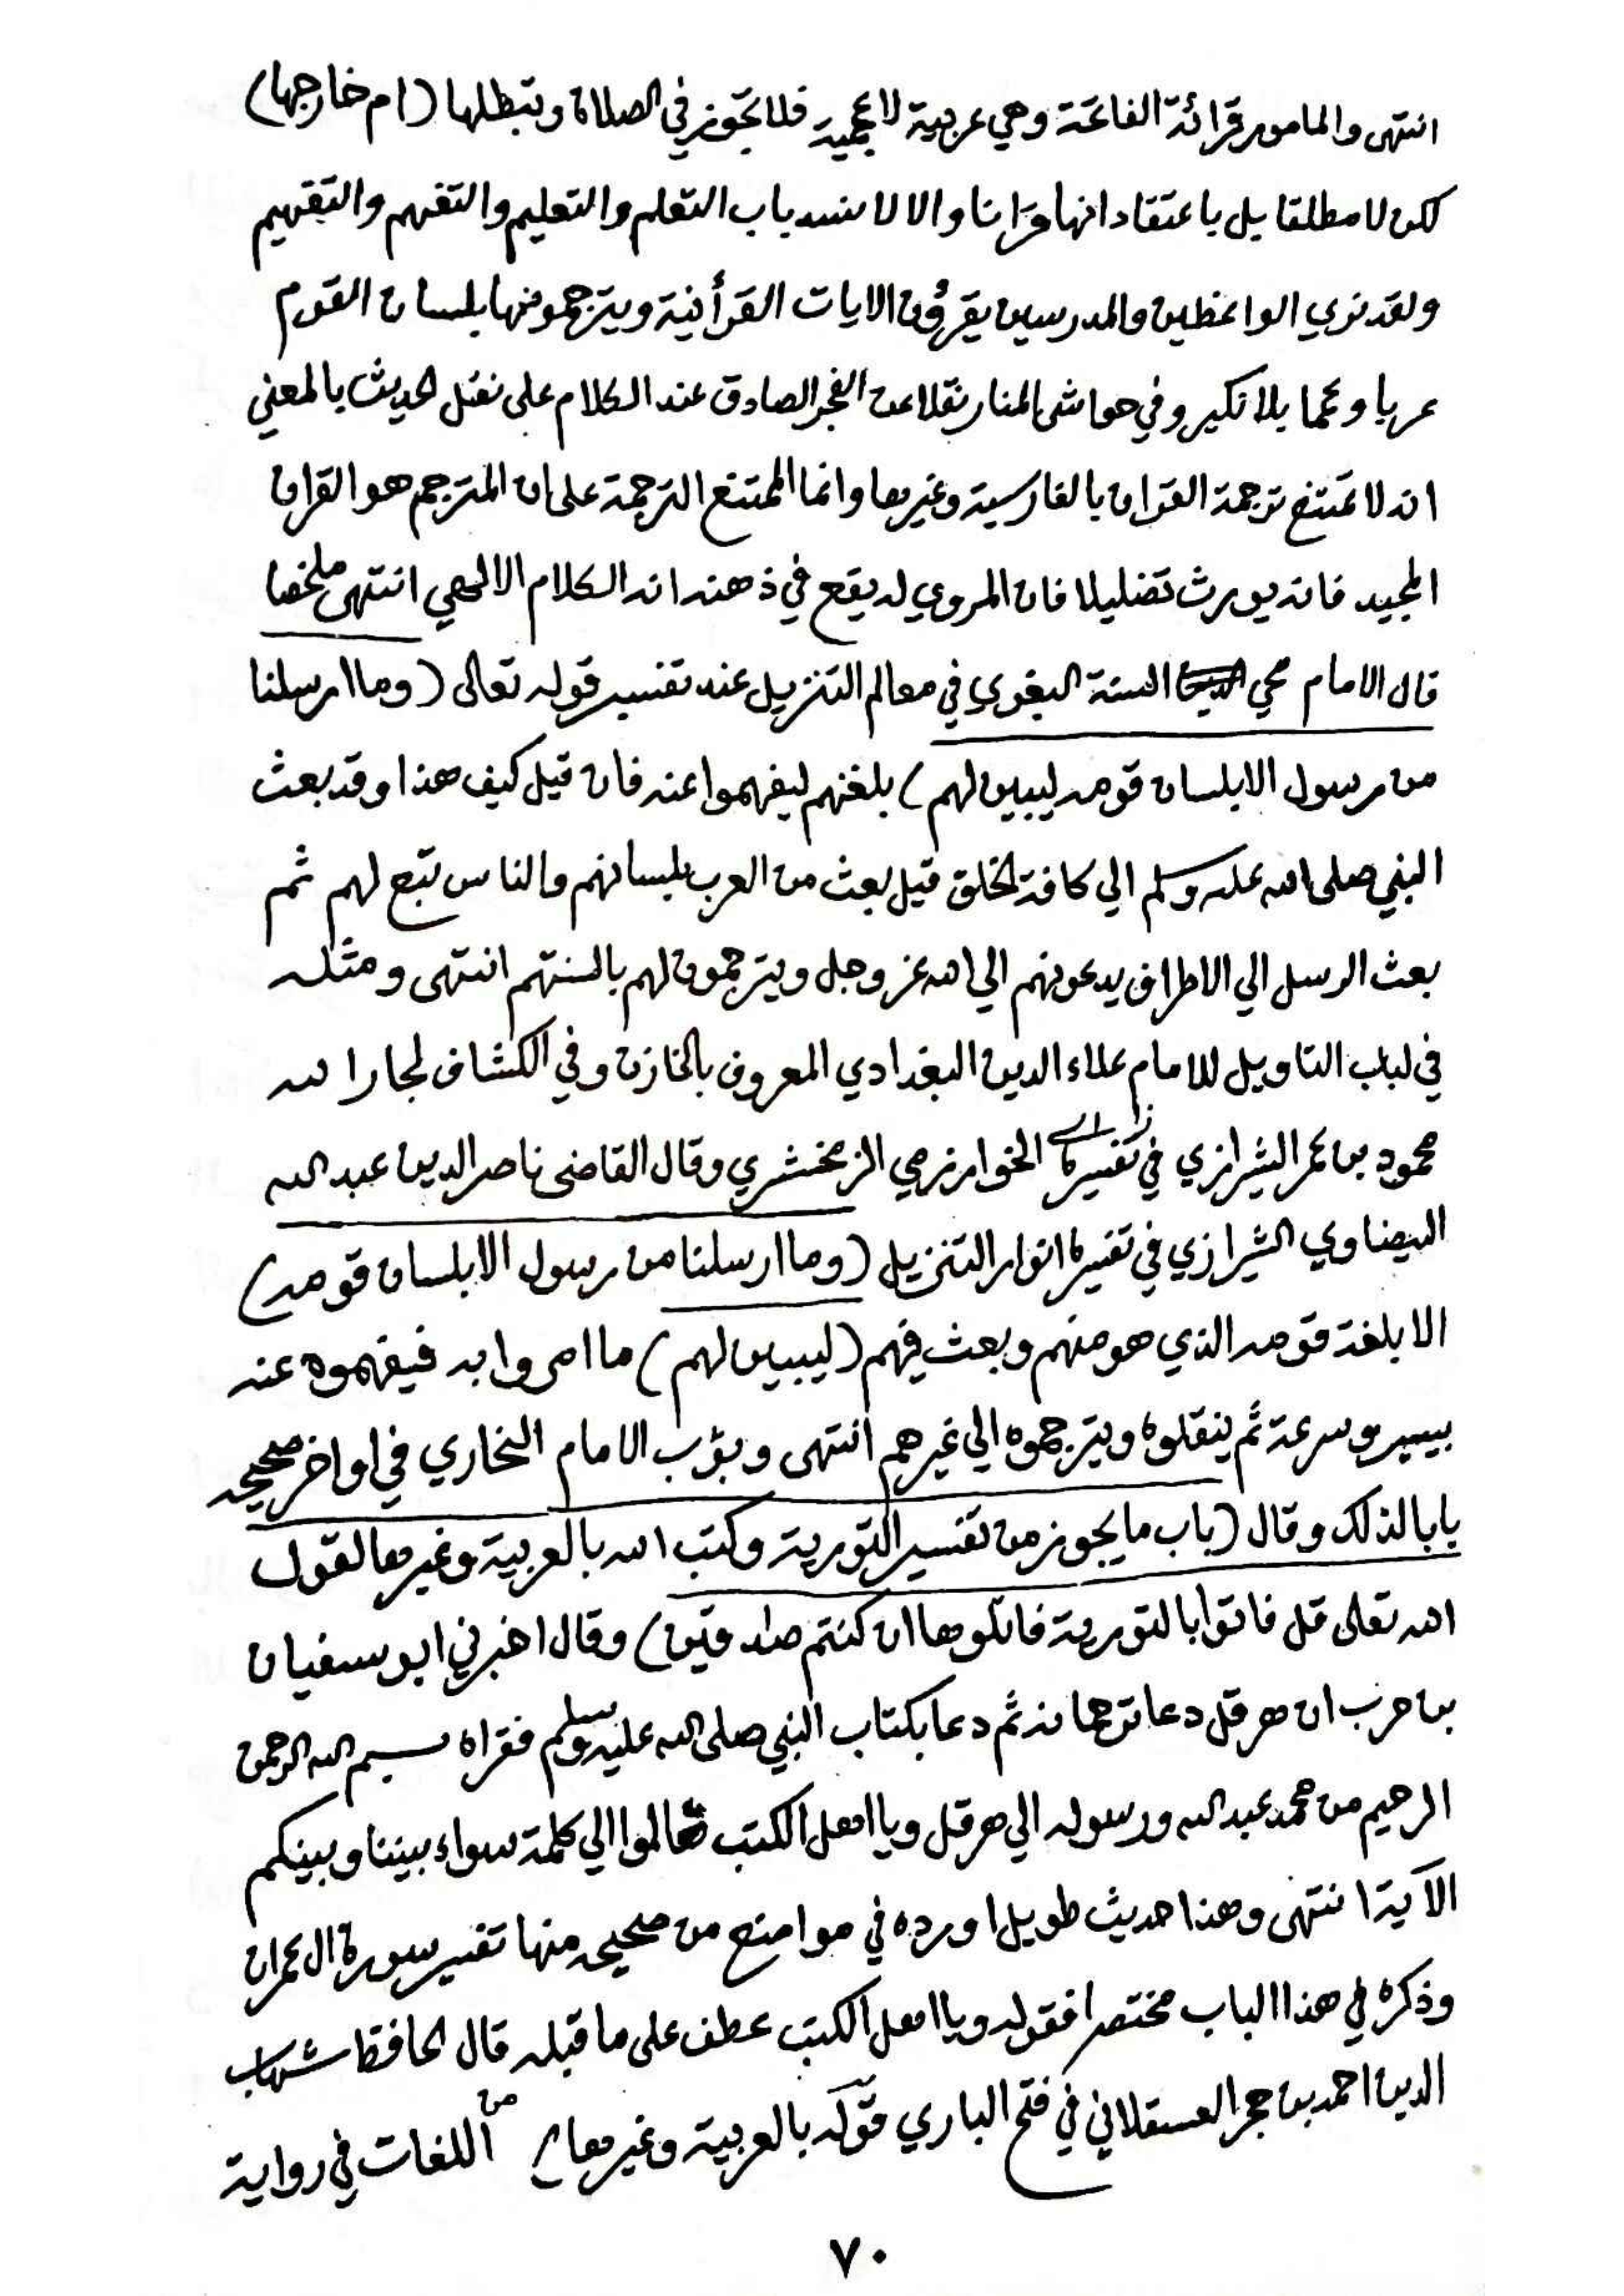 انتهى والمامور قرائة الفاتحة وهي عربية لا عجمية فلا تجوز في الصلاة وتبطلها (ام خارجها)
لكن لا مطلقا بل باعتقاد انها قرانا والا لانسد باب التعلم والتعليم والتفهم والتفهيم
ولقد نري الواعظين والمدرسين يقرؤن الايات القرأنية ويترجمونها بلسان القوم
عربا وعجما بلا نكير وفي حواشى المنار نقلا عن الفجر الصادق عند الكلام على نقل الحديث بالمعني
انه لا تمتنع ترجمة القران بالفارسية وغيرها وانما الممتنع الترجمة على ان المترجم هو القران
المجيد فانه يورث تضليلا فان المروي له يقع في ذهنه انه الكلام الالهي انتهى ملخصا
قال الامام محي السنة البغوي في معالم التنزيل عند تفسير قوله تعالى (وما ارسلنا
من رسول الا بلسان قومه ليبين لهم) بلغتهم ليفهموا عنه فان قيل كيف هذا وقد بعث
النبي صلى الله عليه وسلم الي كافة الخلق قيل بعث من العرب بلسانهم والناس تبع لهم ثم
بعث الرسل الي الاطراف يدعونهم الي الله عز وجل ويترجمون لهم بالسنتهم انتهى ومثله
في لباب التاويل للامام علاء الدين البغدادي المعروف بالخازن وفي الكشاف لجار الله
محمود بن عمر الشيرازي في تفسيره الخوارزمي الزمخشري وقال القاضى ناصر الدين عبد الله
البيضاوي الشيرازي في تفسيره انوار التنزيل (وما ارسلنا من رسول الا بلسان قومه)
الا بلغة قومه الذي هو منهم وبعث فيهم (ليبين لهم) ما امروا به فيفهموه عنه
بيسر وسرعة ثم ينقلوه ويترجموه الي غيرهم انتهى وبوّب الامام البخاري في اواخر صحيحه
بابا لذلك وقال (باب ما يجوز من تفسير التورية وكتب الله بالعربية وغيرها لقول
الله تعالى قل فاتوا بالتورية فاتلوها ان كنتم صادقين) وقال اخبرني ابو سفيان
بن حرب ان هرقل دعا ترجمانه ثم دعا بكتاب النبي صلى الله عليه وسلم فقراه بسم الله الرحمن
الرحيم من محمد عبد الله ورسوله الي هرقل ويا اهل الكتب تعالوا الي كلمة سواء بيننا وبينكم
الآية انتهى وهذا حديث طويل اورده في مواضع من صحيحه منها تفسير سورة ال عمران
وذكره في هذا الباب مختصرا فقوله ويا اهل الكتب عطف على ما قبله قال الحافظ شهاب
الدين احمد بن حجر العسقلاني في فتح الباري قوله بالعربية وغيرها اي من اللغات في رواية
٧٠